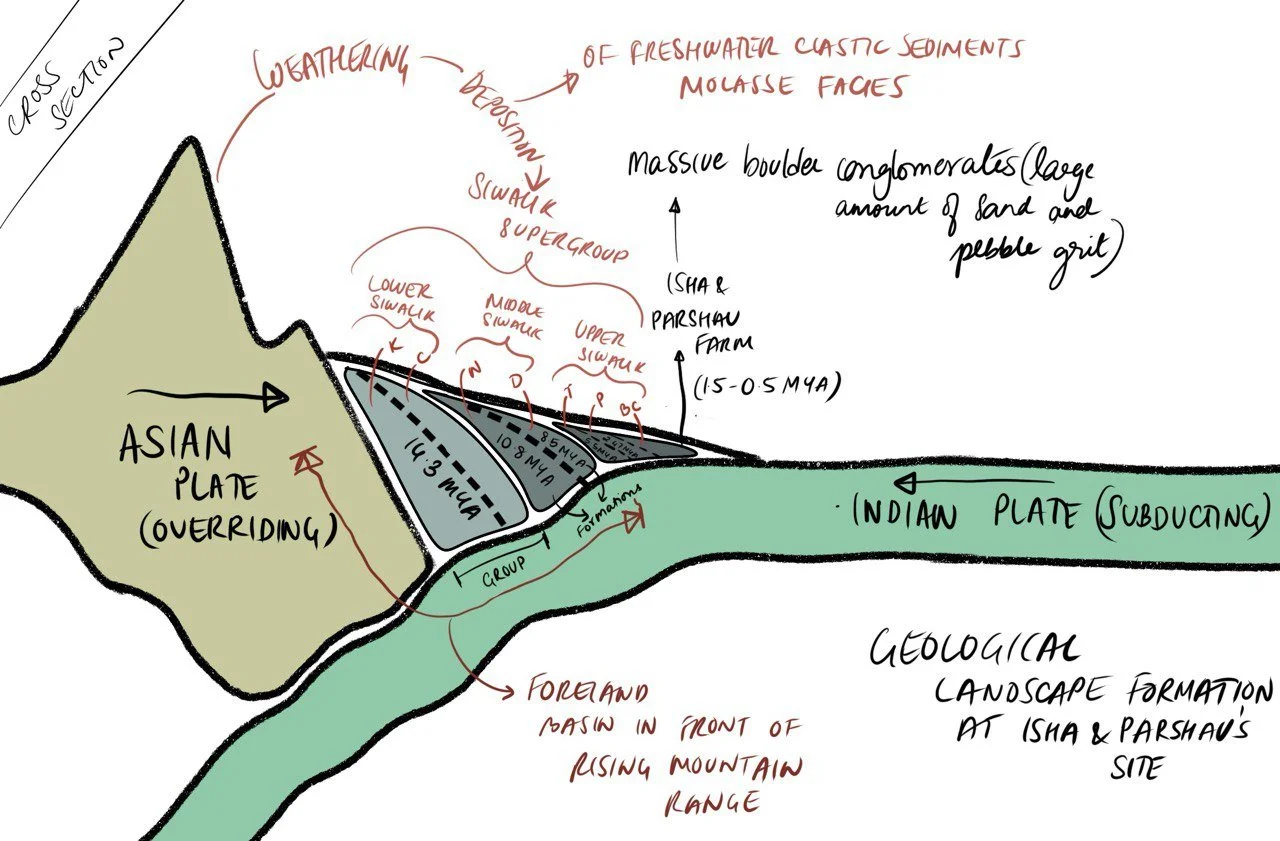 CROSS
SECTION
WEATHERING
DEPOSITION
OF FRESHWATER CLASTIC SEDIMENTS
MOLASSE FACIES
SIWALIK
SUPERGROUP
Massive boulder conglomerates (large
amount of sand and
pebble grit)
ISHA &
PARSHAV
FARM
(1.5-0.5 MYA)
LOWER
SIWALIK
K C
MIDDLE
SIWALIK
N D
UPPER
SIWALIK
T P BC
14.3 MYA
10.8 MYA
8.5 MYA
Formations
GROUP
ASIAN
PLATE
(OVERRIDING)
INDIAN PLATE (SUBDUCTING)
FORELAND
BASIN IN FRONT OF
RISING MOUNTAIN
RANGE
GEOLOGICAL
LANDSCAPE FORMATION
AT ISHA & PARSHAV'S
SITE